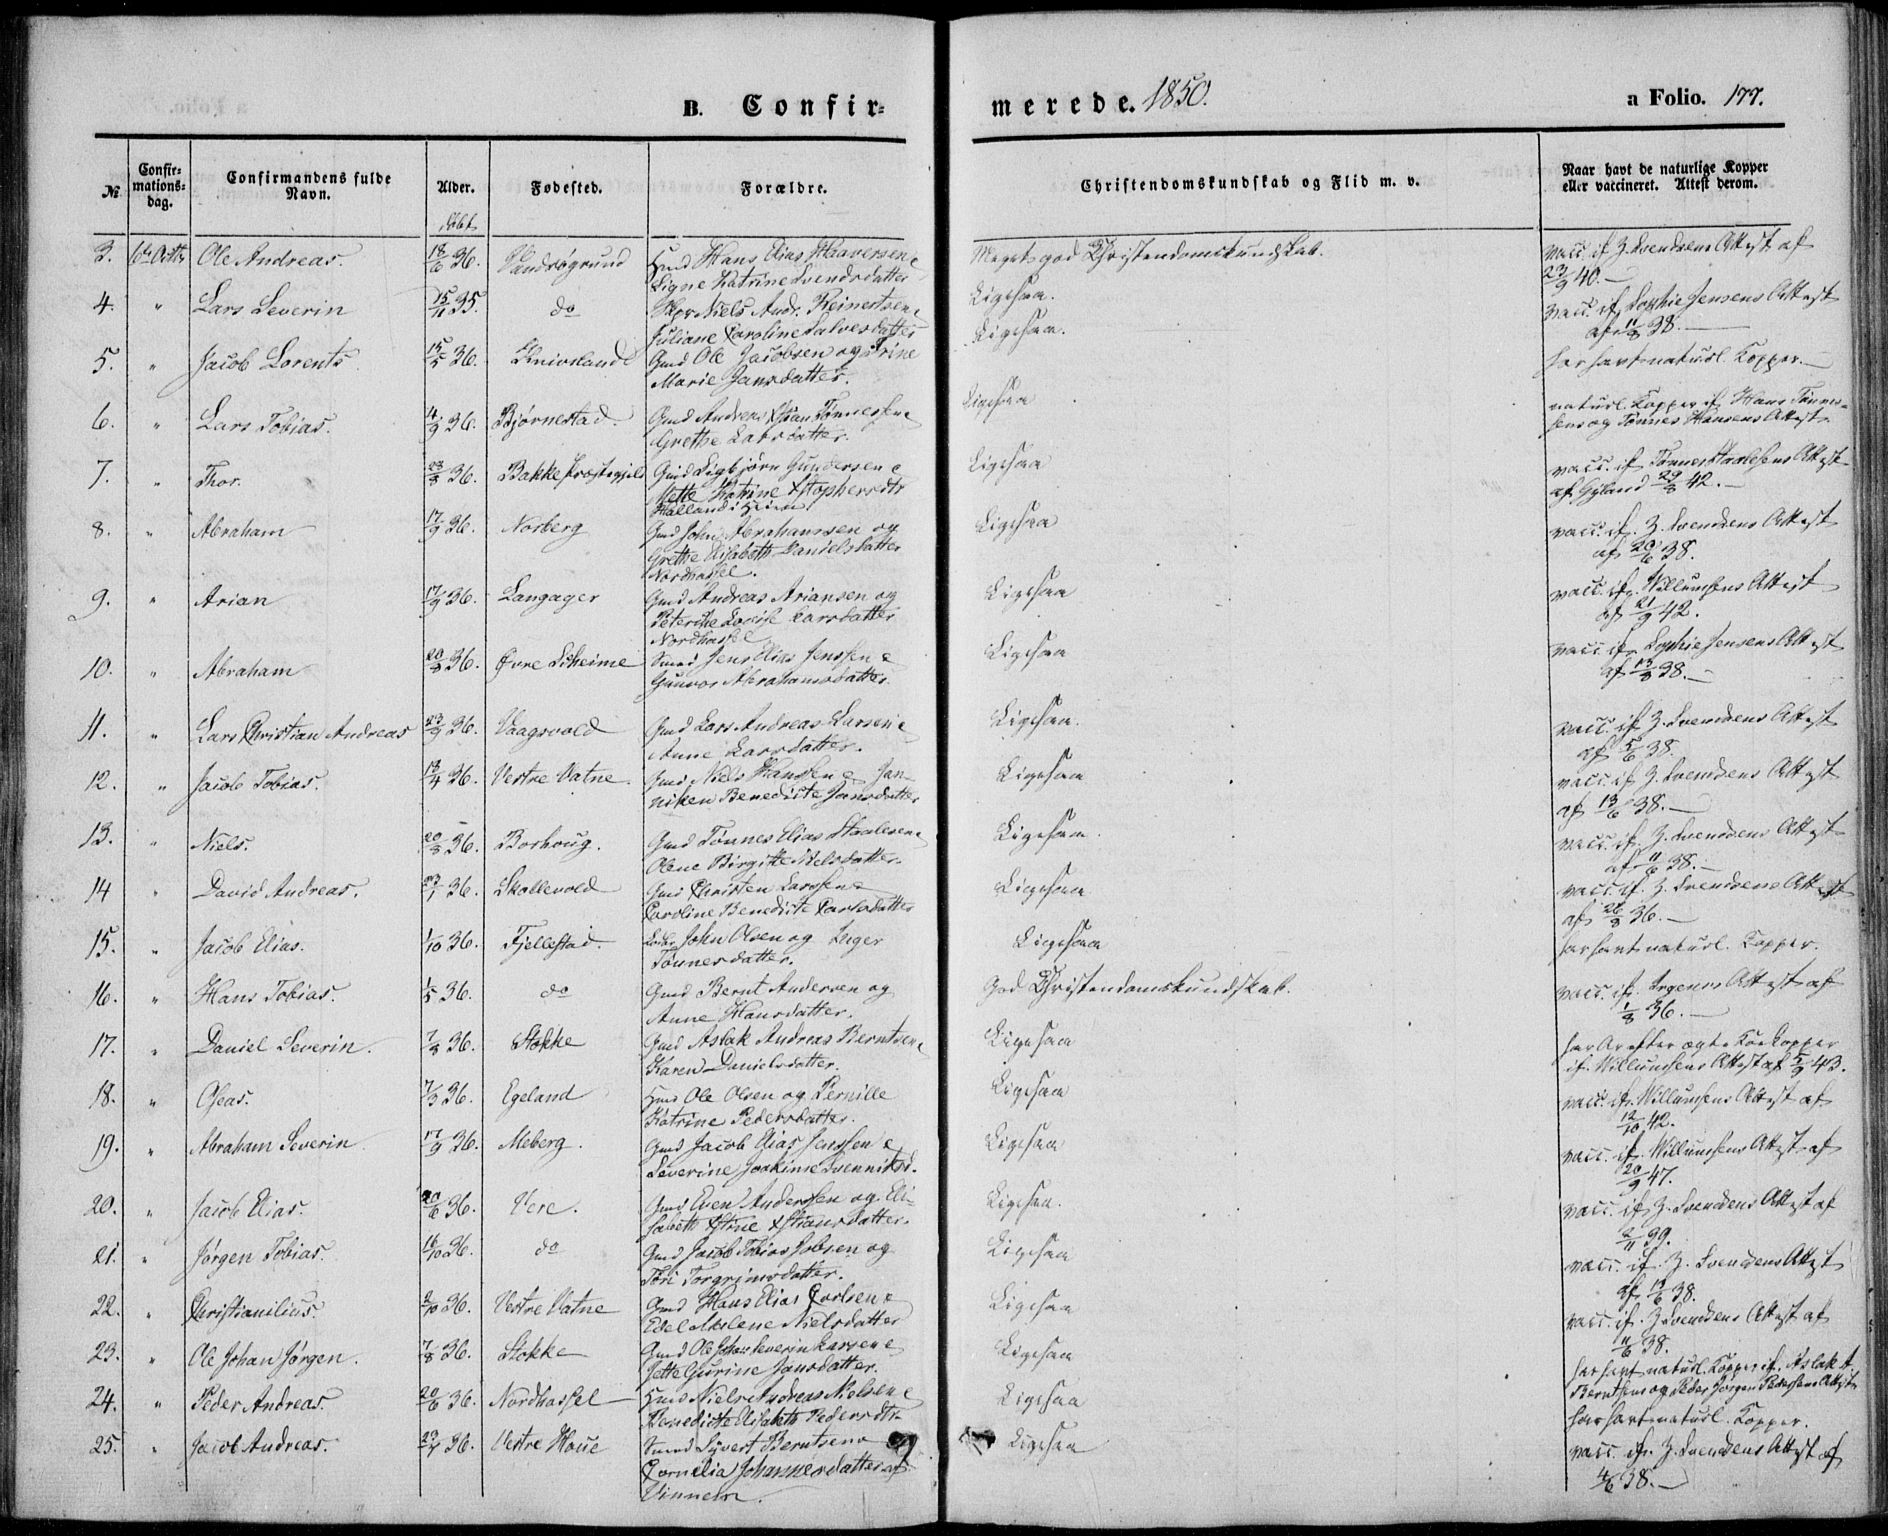 B. Confir=
merede. 1850.
a Folio. 177.
№
Confir=
mations=
dag.
Confirmandens fulde
Navn.
Alder.
døbt
Fødested.
Forældre.
Christendomskundskab og Flid m. v.
Naar havt de naturlige Kopper
eller vaccineret. Attest derom.
3. 6te Octbr Ole Andreas. 18/6 36. Hans Elias Haaversen e
Signe Katrine Svendsdatter
Meget god Christendomskundskab.
vacc. if Z. Svendsens Attest af
23/9 40.
4. " Lars Severin 15/11 35. do Niels Andr. Reinertsen e
Juliane Caroline Salvesdatter
Ligesaa.
vacc. if. Sophie Jensens Attest
af 11/8 38.
5. " Jacob Lorents 15/5 36. Knivsland Gmd Ole Jacobsen og Trine
Marie Jansdatter.
Ligesaa.
har havt naturl. Kopper.
6. " Lars Tobias. 4/9 36. Bjørnestad. Gmd Andreas Tønnessen e
Grethe Larsdatter.
Ligesaa
naturl. Kopper if Hans Tønnes-
sens og Tønnes Hansens Attest
7. " Thor. 36. Bakke Præstegjeld Gmd Sigbjørn Gundersen e
Mette Katrine Xstophersdtr
Ligesaa
vacc. if Tønnes Staalesens Attest
af Gyland 29/8 42.
8. " Abraham 17/9 36. Norberg Gmd John Abrahamsen og
Grethe Elisabeth Danielsdatter
Nordhassel.
Ligesaa
vacc. if. Z. Svendsens Attest
af 20/6 38.
9. " Arian 17/9 36. Langager Gmd Andreas Ariansen og
Larsdatter
Nordhassel
Ligesaa
vacc. if. Willumsens Attest
af 21/9 42.
10. " Abraham 20/8 36. Øvre Skeime Jens Elias Jenssen e
Gunvor Abrahamsdatter.
Ligesaa
vacc. if. Sophie Jensens Attest
af 13/8 38.
11. " Lars Christian Andreas 36. Vaagsvold Gmd Lars Andreas Larsen e
Anne Larsdatter.
Ligesaa.
vacc. if Z. Svendsens Attest
af 5/6 38.
12. " Jacob Tobias. 18/4 36. Vestre Vatne Gmd Niels Hanssen e Jan-
niken Benedicte Jansdatter
Ligesaa
vacc. if Z. Svendsens Attest
af 13/6 38.
13. " Niels. 20/8 36. Borhoug. Gmd Tønnes Elias Staalesen e
Olene Birgitte Nielsdatter.
Ligesaa.
vacc. if. Z. Svendsens Attest
af 11/6 38.
14 " David Andreas. 36. Skollevold Gmd Christen Larssen e
Caroline Benedicte Carlsdatter
Ligesaa
vacc. if. Z. Svendsens Attest
af 26/8 36.
15. " Jacob Elias. 1/10 36. Fjellestad. John Olsen og Inger
Tønnesdatter.
Ligesaa
har havt naturl. Kopper.
16. " Hans Tobias. 1/5 36. do Gmd Bernt Andersen og
Anne Hansdatter.
God Christendomskundskab.
vacc. if. Attest af
1/8 36.
17. " Daniel Severin. 7/3 36. Stokke Gmd Aslak Andreas Berntsen e
Karen Danielsdatter.
Ligesaa
har Ar efter ægte Koe Kopper
if. Willumsens Attest af 5/9 43.
18. " Oseas. 7/3 36. Egeland Ole Olsen og Pernille
Katrine Pedersdatter.
Ligesaa
vacc. if. Willumsens Attest af
12/10 42.
19. " Abraham Severin 17/9 36. Meberg. Gmd Jacob Elias Jenssen e
Severine Joakime
Ligesaa
vacc. if. Willumsens Attest af
20/9 47.
20. " Jacob Elias. 20/6 36. Vere. Gmd Even Anderssen og Eli-
sabeth Stine Xstiansdatter.
Ligesaa.
vacc. if Z. Svendsens Attest af
2/11 39.
21. " Jørgen Tobias. 16/10 36. do Gmd Jacob Tobias Jobsen og
Tori Torgrimsdatter.
Ligesaa
vacc. if. Z. Svendsens Attest
af 12/6 38.
22. " Christianilius. 2/10 36. Vestre Vatne Gmd Hans Elias Carlsen e
Edel Malene Nielsdatter
Ligesaa
vacc. if. Z. Svendsens Attest af
11/6 38.
23. " Ole Johan Jørgen. 7/8 36. Stokke Gmd Ole Johan Severin Larssen e
Jette Gurine Jansdatter.
Ligesaa
har havt naturl. Kopper if. Aslak A.
Berntsens og Peder Jørgen Pedersens Attest
24. " Peder Andreas. 20/6 36. Nordhassel Niels Andreas Nielsen e
Benedicte Elisabeth Pedersdtr
Ligesaa
har havt naturl. Kopper.
25. " Jacob Andreas. 36. Vestre Haue Syvert Berntsen
Cornelia Johannesdatter af
Vinnem.
Ligesaa
vacc. if. Z. Svendsens Attest af
4/6 38.